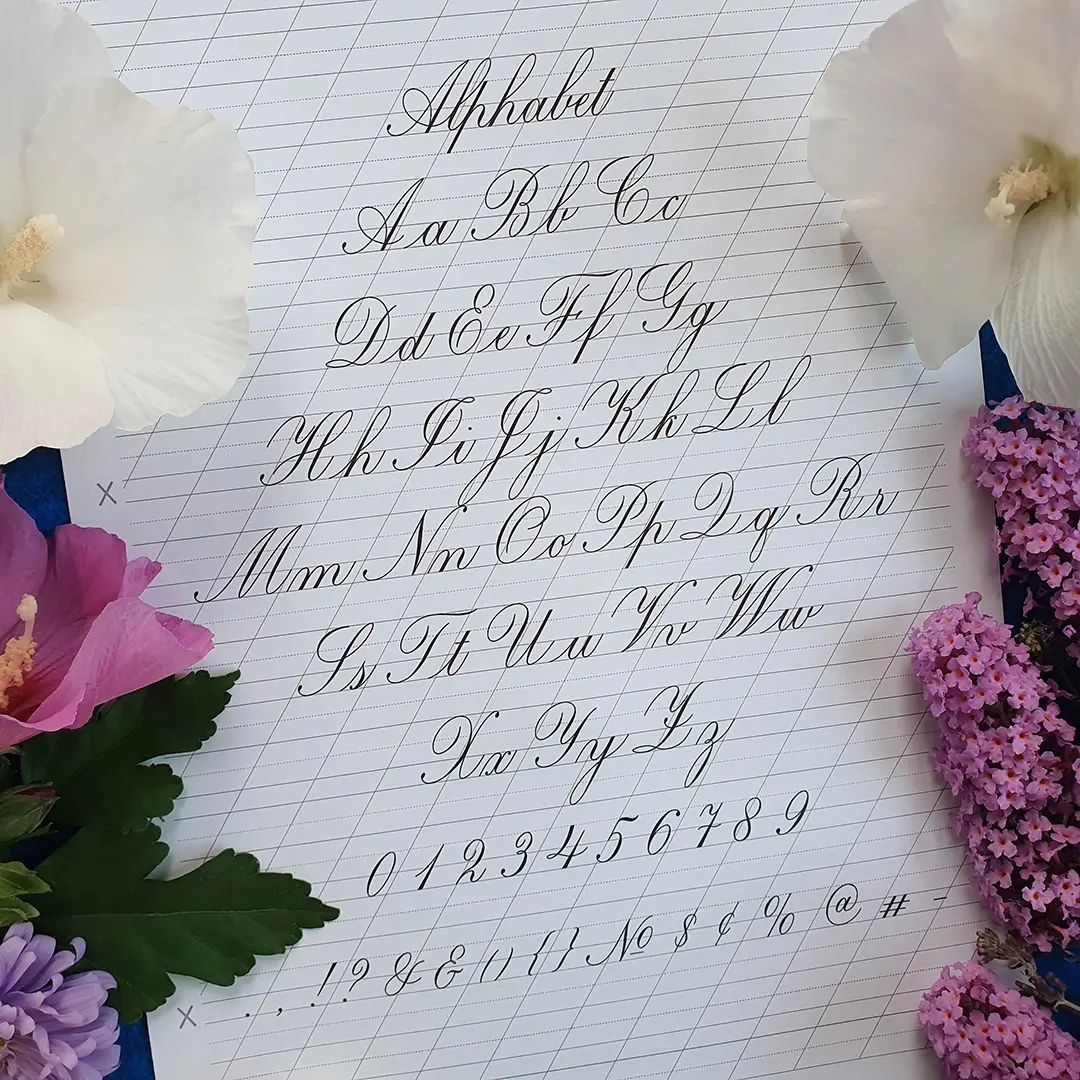 Alphabet
Aa Bb Cc
Dd Ee Ff Gg
Hh Ii Jj Kk Ll
Mm Nn Oo Pp Qq Rr
Ss Tt Uu Vv Ww
Xx Yy Zz
0 1 2 3 4 5 6 7 8 9
. , ! ? & & () {} № $ ¢ % @ # -